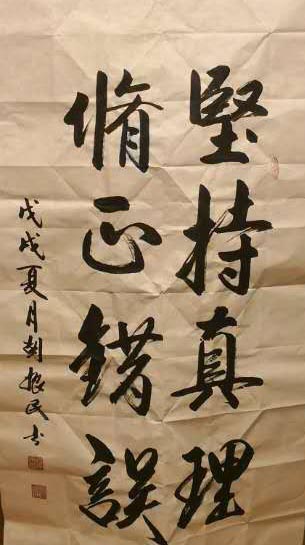 堅持真理
脩正錯誤
戊戌夏月劉振民书